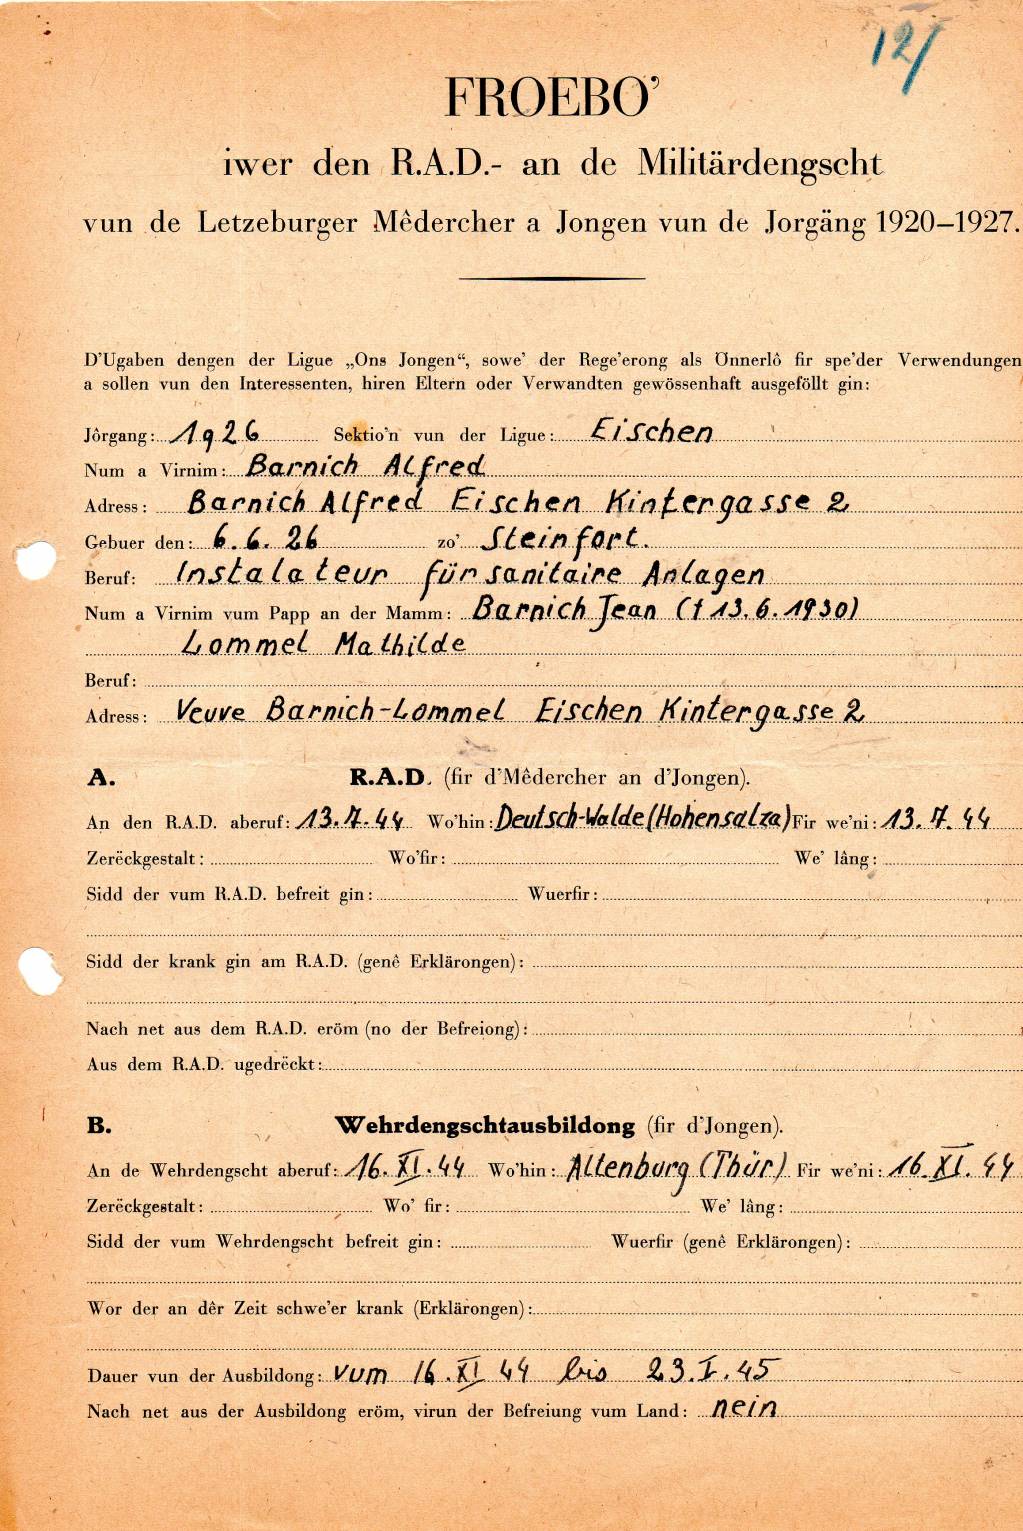 12/
FROEBO'
iwer den R.A.D.- an de Militärdengscht
vun de Letzeburger Mêdercher a Jongen vun de Jorgäng 1920–1927.
D'Ugaben dengen der Ligue „Ons Jongen“, sowe' der Rege'erong als Önnerlô fir spe'der Verwendungen
a sollen vun den Interessenten, hiren Eltern oder Verwandten gewössenhaft ausgeföllt gin:
Jôrgang: 1926 Sektio'n vun der Ligue: Eischen
Num a Virnim: Barnich Alfred
Adress: Barnich Alfred Eischen Kintergasse 2
Gebuer den: 6.6.26 zo' Steinfort.
Beruf: Instalateur für sanitaire Anlagen
Num a Virnim vum Papp an der Mamm: Barnich Jean († 13.6.1930)
Lommel Mathilde
Beruf:
Adress: Veuve Barnich-Lommel Eischen Kintergasse 2
A. R.A.D. (fir d'Mêdercher an d'Jongen).
An den R.A.D. aberuf: 13.7.44 Wo'hin: Deutsch-Walde (Hohensalza) Fir we'ni: 13.7.44
Zerëckgestalt: Wo'fir: We' lâng:
Sidd der vum R.A.D. befreit gin: Wuerfir:
Sidd der krank gin am R.A.D. (genê Erklärongen):
Nach net aus dem R.A.D. eröm (no der Befreiong):
Aus dem R.A.D. ugedréckt:
B. Wehrdengschtausbildong (fir d'Jongen).
An de Wehrdengscht aberuf: 16.XI.44 Wo'hin: Altenburg (Thür) Fir we'ni: 16.XI.44
Zerëckgestalt: Wo' fir: We' lâng:
Sidd der vum Wehrdengscht befreit gin: Wuerfir (genê Erklärongen):
Wor der an dêr Zeit schwe'er krank (Erklärongen):
Dauer vun der Ausbildong: vum 16.XI 44 bis 23.I.45
Nach net aus der Ausbildong eröm, virun der Befreiung vum Land: nein